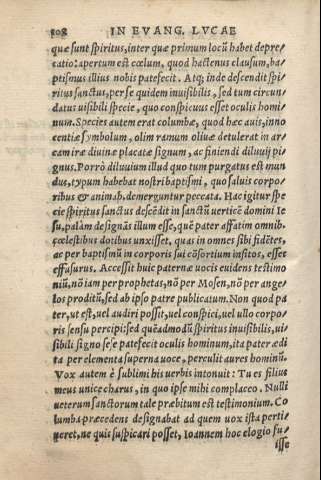 808 IN EVANG. LVCAE
quæ sunt spiritus, inter quæ primum locũ habet depre⸗
catio: apertum est cœlum, quod hactenus clausum, ba⸗
ptismus illius nobis patefecit. Atq; inde descendit spi⸗
ritus sanctus, per se quidem inuisibilis, sed tum circun⸗
datus uisibili specie, quo conspicuus esset oculis homi⸗
num. Species autem erat columbæ, quod hæc auis, inno
centiæ symbolum, olim ramum oliuæ detulerat in ar⸗
cam iræ diuinæ placatæ signum, ac finiendi diluuij pi⸗
gnus. Porrò diluuium illud quo tum purgatus est mun
dus, typum habebat nostri baptismi, quo saluis corpo⸗
ribus & animab. demerguntur peccata. Hac igitur spe
cie spiritus sanctus descẽdit in sanctũ uerticẽ domini Ie
su, palàm designãs illum esse, quẽ pater affatim omnib.
cœlestibus dotibus unxisset, quas in omnes sibi fidẽtes,
ac per baptismũ in corporis sui cõsortium insitos, esset
effusurus. Accessit huic paternæ uocis euidens testimo
niũ, nõ iam per prophetas, nõ per Mosen, nõ per ange⸗
los proditũ, sed ab ipso patre publicatum. Non quod pa
ter, ut est, uel audiri possit, uel conspici, uel ullo corpo⸗
ris sensu percipi: sed quẽadmodũ spiritus inuisibilis, ui⸗
sibili signo sese patefecit oculis hominum, ita pater ædi
ta per elementa superna uoce, perculit aures hominũ.
Vox autem è sublimi his uerbis intonuit: Tu es filius
meus unice charus, in quo ipse mihi complaceo. Nulli
ueterum sanctorum tale præbitum est testimonium. Co
lumba præcedens designabat ad quem uox ista perti⸗
neret, ne quis suspicari posset, Ioannem hoc elogio su⸗
isse